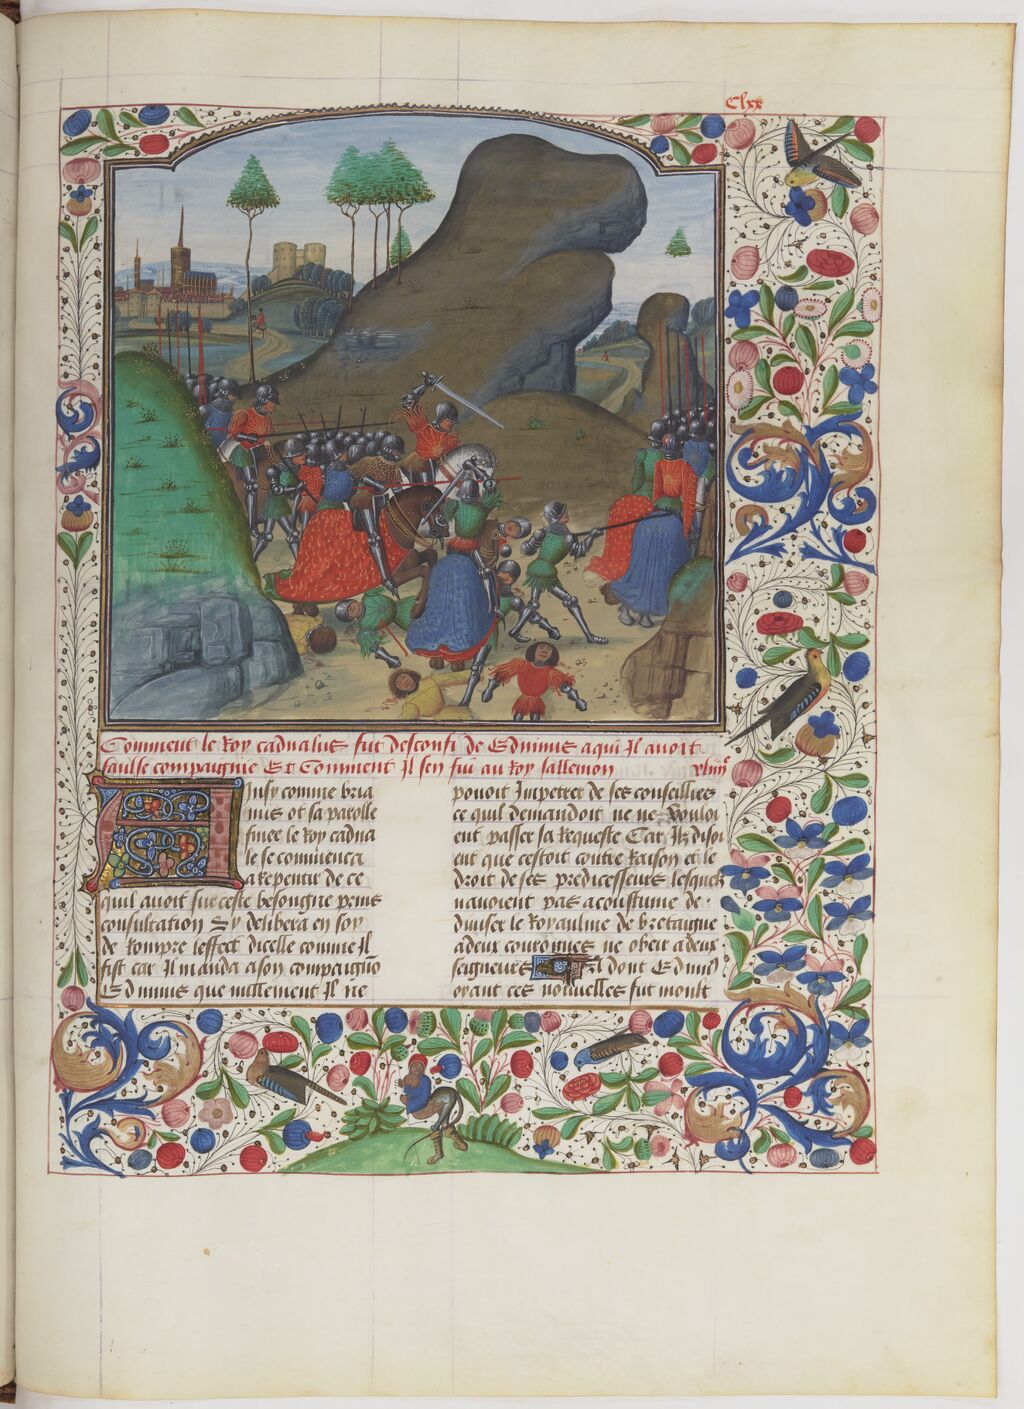 Clxx
Comment le Roy cadualus fut desconfi de Edvinus a qui Il auoit
faulse compaignie Et Comment Il sen fui au Roy sallemon xliiij°
Ainsy comme bria
nus ot sa parolle
finee le Roy cadua
le se commenca
a Repentir de ce
quil auoit sur ceste besongne prins
consultation Sy delibera en soy
de Rompre leffect dicelle comme Il
fist car Il manda a son compaignõ
Edvinus que nullement Il ne
pouoit Impetrer de ses conseilliers
ce quil demandoit ne ne vouloi
ent passer sa Requeste Car Ilz disoi
ent que cestoit contre Raison et le
droit de ses predicesseurs lesquelz
nauoient pas acoustume de
diuiser le Royaulme de bretaigne
a deux couronnes ne obeir a deux
seigneurs Il dont Edvinus
oyant ces nouuelles fut moult